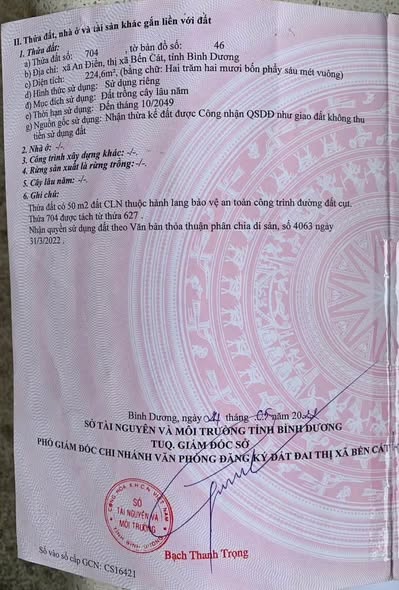 II. Thửa đất, nhà ở và tài sản khác gắn liền với đất
1. Thửa đất:
a) Thửa đất số: 704 , tờ bản đồ số: 46
b) Địa chỉ: xã An Điền, thị xã Bến Cát, tỉnh Bình Dương
c) Diện tích: 224,6m², (bằng chữ: Hai trăm hai mươi bốn phẩy sáu mét vuông)
d) Hình thức sử dụng: Sử dụng riêng
đ) Mục đích sử dụng: Đất trồng cây lâu năm
e) Thời hạn sử dụng: Đến tháng 10/2049
g) Nguồn gốc sử dụng: Nhận thừa kế đất được Công nhận QSDĐ như giao đất không thu
tiền sử dụng đất
2. Nhà ở: -/-.
3. Công trình xây dựng khác: -/-.
4. Rừng sản xuất là rừng trồng: -/-.
5. Cây lâu năm: -/-.
6. Ghi chú:
Thửa đất có 50 m2 đất CLN thuộc hành lang bảo vệ an toàn công trình đường đất cụt.
Thửa 704 được tách từ thửa 627 .
Nhận quyền sử dụng đất theo Văn bản thỏa thuận phân chia di sản, số 4063 ngày
31/3/2022 .
Bình Dương, ngày tháng 05 năm 20
SỞ TÀI NGUYÊN VÀ MÔI TRƯỜNG TỈNH BÌNH DƯƠNG
TUQ. GIÁM ĐỐC SỞ
PHÓ GIÁM ĐỐC CHI NHÁNH VĂN PHÒNG ĐĂNG KÝ ĐẤT ĐAI THỊ XÃ BẾN CÁT
CỘNG HÒA X.H.C.N VIỆT NAM
SỞ
TÀI NGUYÊN VÀ
MÔI TRƯỜNG
TỈNH BÌNH DƯƠNG
Bạch Thanh Trọng
Số vào sổ cấp GCN: CS16421